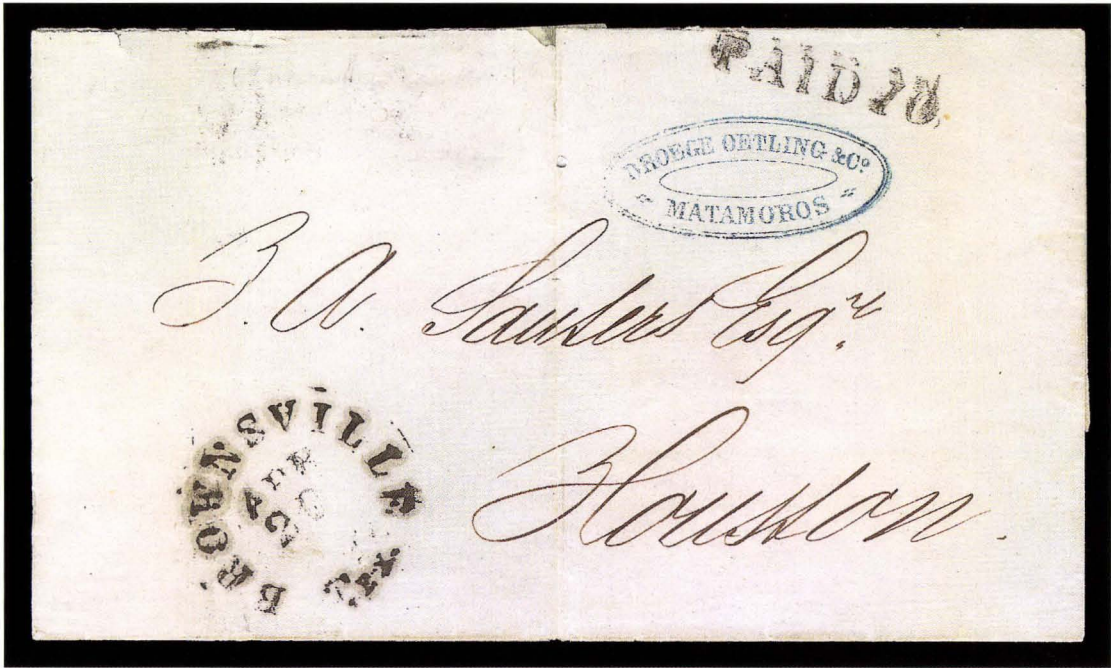 PAID 10
DROEGE OETLING & Co
MATAMOROS
A. Sauters Esqr.
Houston.
BROWNSVILLE
TXS